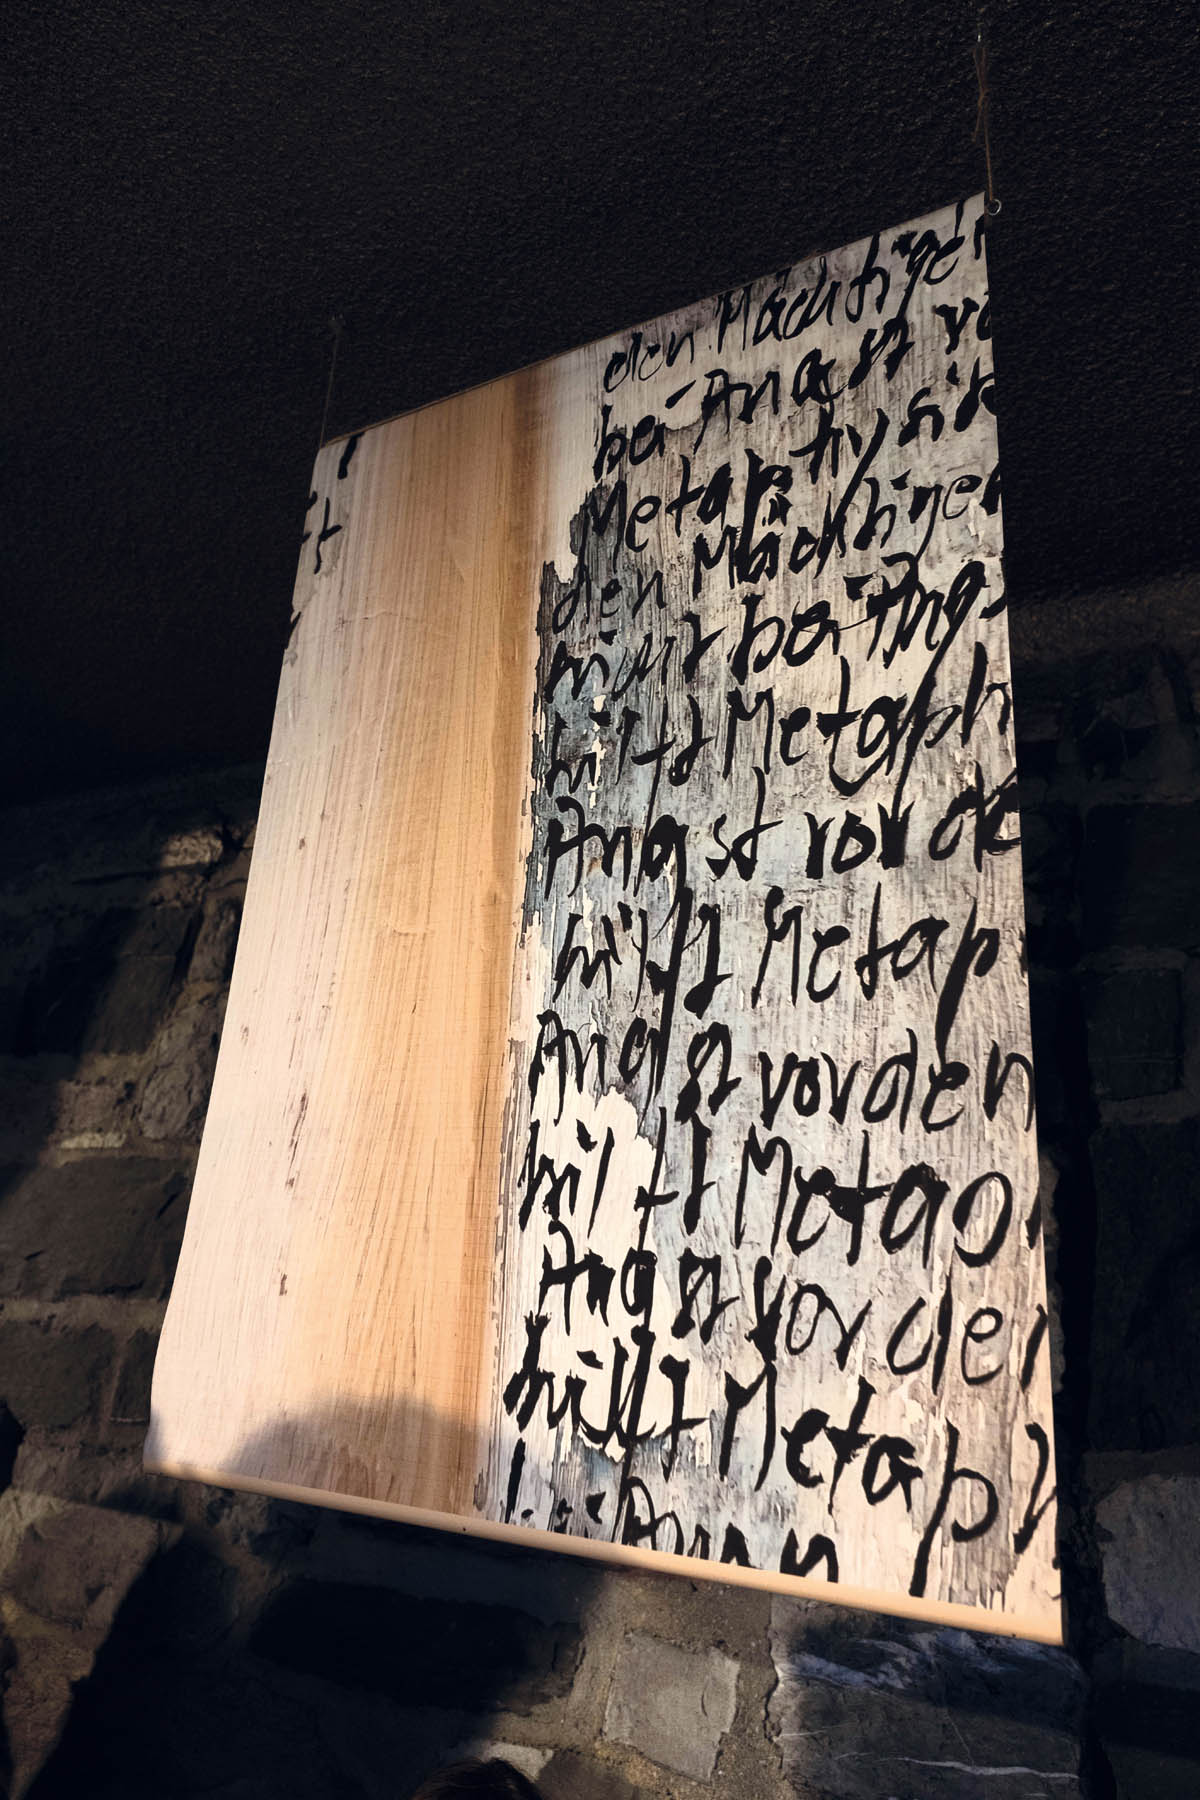 den Mächtigen
bei Angst vo
Metaphysik
den Mächtigen
nicht bei Angs
hilft Metaph
Angst vor de
hilft Metap
Angst vor den
hilft Metap
Angst vor den
hilft Metaph